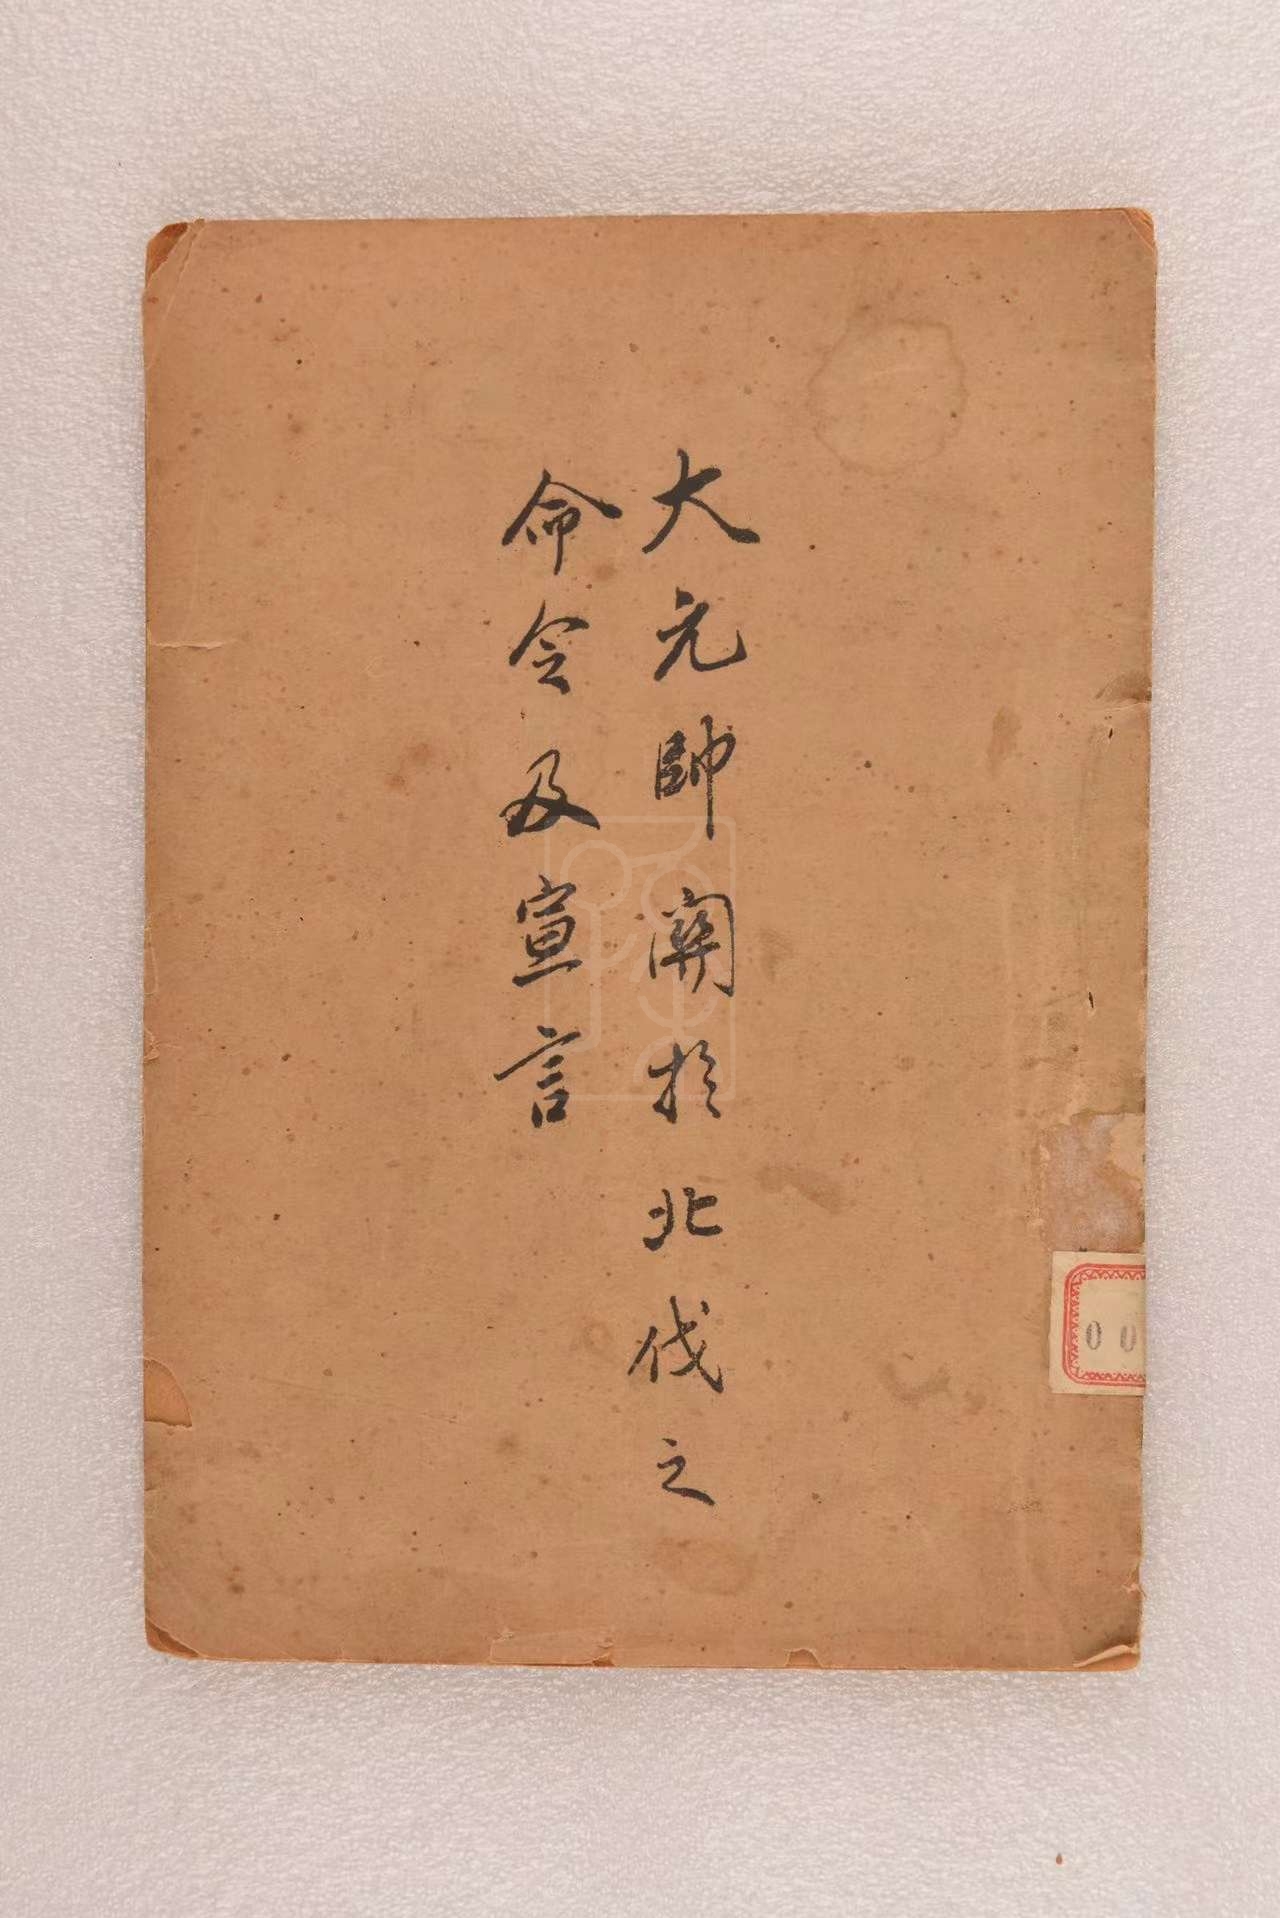 大元帥關於北伐之
命令及宣言
00